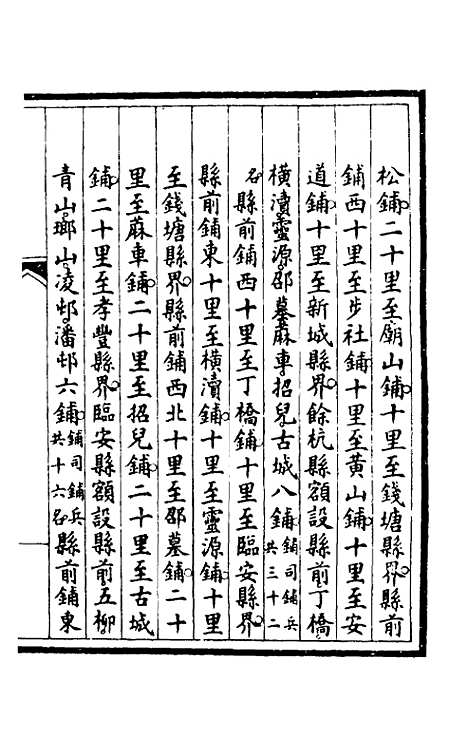 松鋪二十里至廟山鋪十里至錢塘縣界縣前
鋪西十里至步社鋪十里至黃山鋪十里至安
道鋪十里至新城縣界餘杭縣額設縣前丁橋
橫瀆靈源邵墓蔴車招兒古城八鋪鋪司鋪兵共三十二
名縣前鋪西十里至丁橋鋪十里至臨安縣界
縣前鋪東十里至橫瀆鋪十里至靈源鋪十里
至錢塘縣界縣前鋪西北十里至邵墓鋪二十
里至蔴車鋪二十里至招兒鋪二十里至古城
鋪二十里至孝豐縣界臨安縣額設縣前五柳
青山瑯山凌邨潘邨六鋪鋪司鋪兵共十六名縣前鋪東